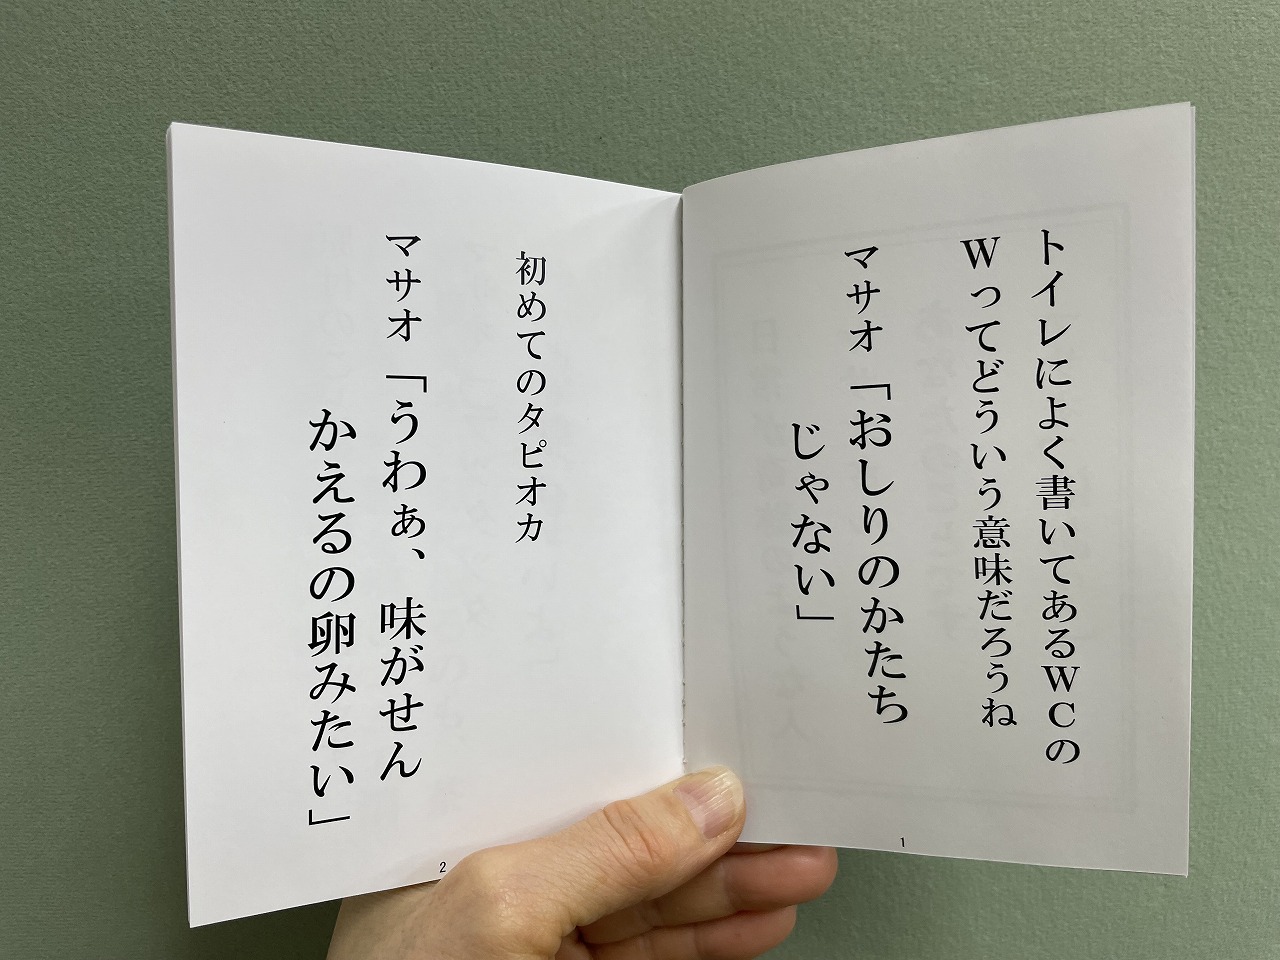 トイレによく書いてあるＷＣの
Ｗってどういう意味だろうね
マサオ「おしりのかたち
じゃない」
1
初めてのタピオカ
マサオ「うわぁ、味がせん
かえるの卵みたい」
2